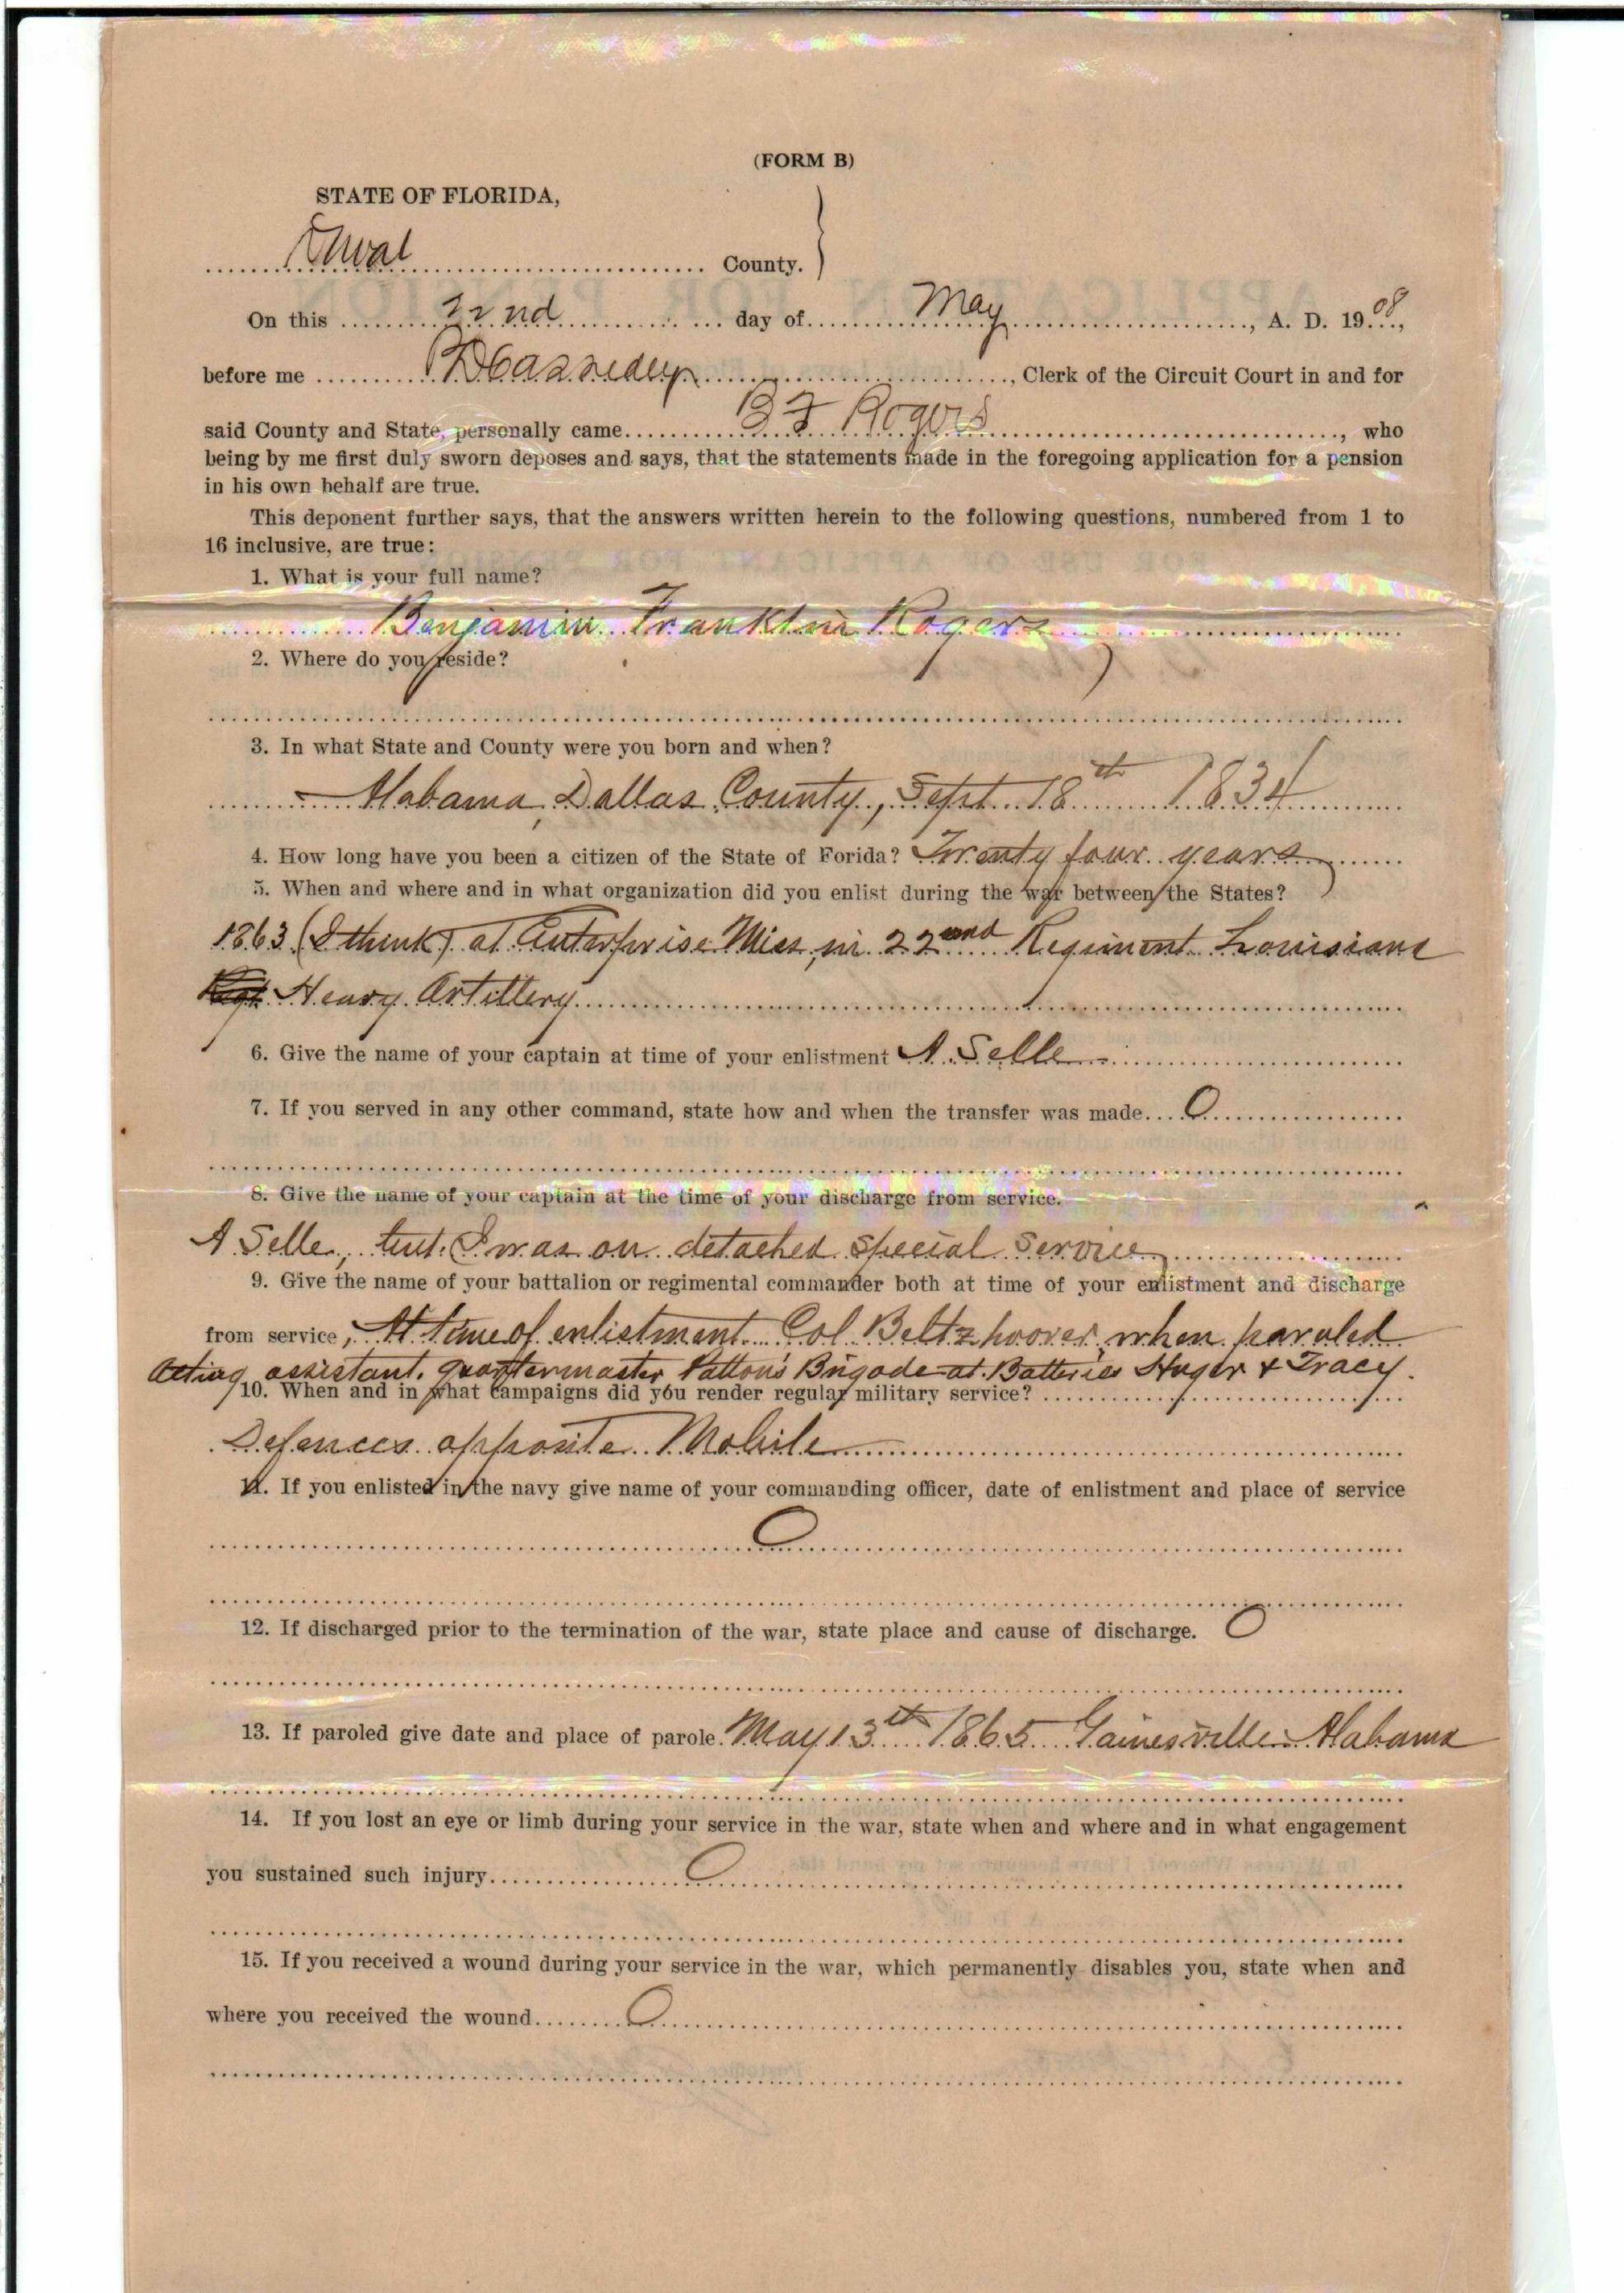 (FORM B)
STATE OF FLORIDA,
Duval County.
On this 22nd day of May, A. D. 1908,
before me P D Cassidey, Clerk of the Circuit Court in and for
said County and State, personally came B F Rogers, who
being by me first duly sworn deposes and says, that the statements made in the foregoing application for a pension
in his own behalf are true.
This deponent further says, that the answers written herein to the following questions, numbered from 1 to
16 inclusive, are true:
1. What is your full name?
Benjamin Franklin Rogers
2. Where do you reside?
3. In what State and County were you born and when?
Alabama, Dallas County, Sept 18th 1834
4. How long have you been a citizen of the State of Forida? Twenty four years
5. When and where and in what organization did you enlist during the war between the States?
1863 (I think) at Enterprise Miss, in 22nd Regiment Louisiana
Heavy Artillery
6. Give the name of your captain at time of your enlistment A. Selle
7. If you served in any other command, state how and when the transfer was made. O
8. Give the name of your captain at the time of your discharge from service.
A Selle, but I was on detached special service
9. Give the name of your battalion or regimental commander both at time of your enlistment and discharge
from service, At time of enlistment Col Beltzhoover, when paroled
Acting assistant quartermaster Patton's Brigade at Batteries Huger & Tracy.
10. When and in what campaigns did you render regular military service?
Defences opposite Mobile
11. If you enlisted in the navy give name of your commanding officer, date of enlistment and place of service
O
12. If discharged prior to the termination of the war, state place and cause of discharge. O
13. If paroled give date and place of parole. May 13th 1865 Gainesville Alabama
14. If you lost an eye or limb during your service in the war, state when and where and in what engagement
you sustained such injury. O
15. If you received a wound during your service in the war, which permanently disables you, state when and
where you received the wound. O